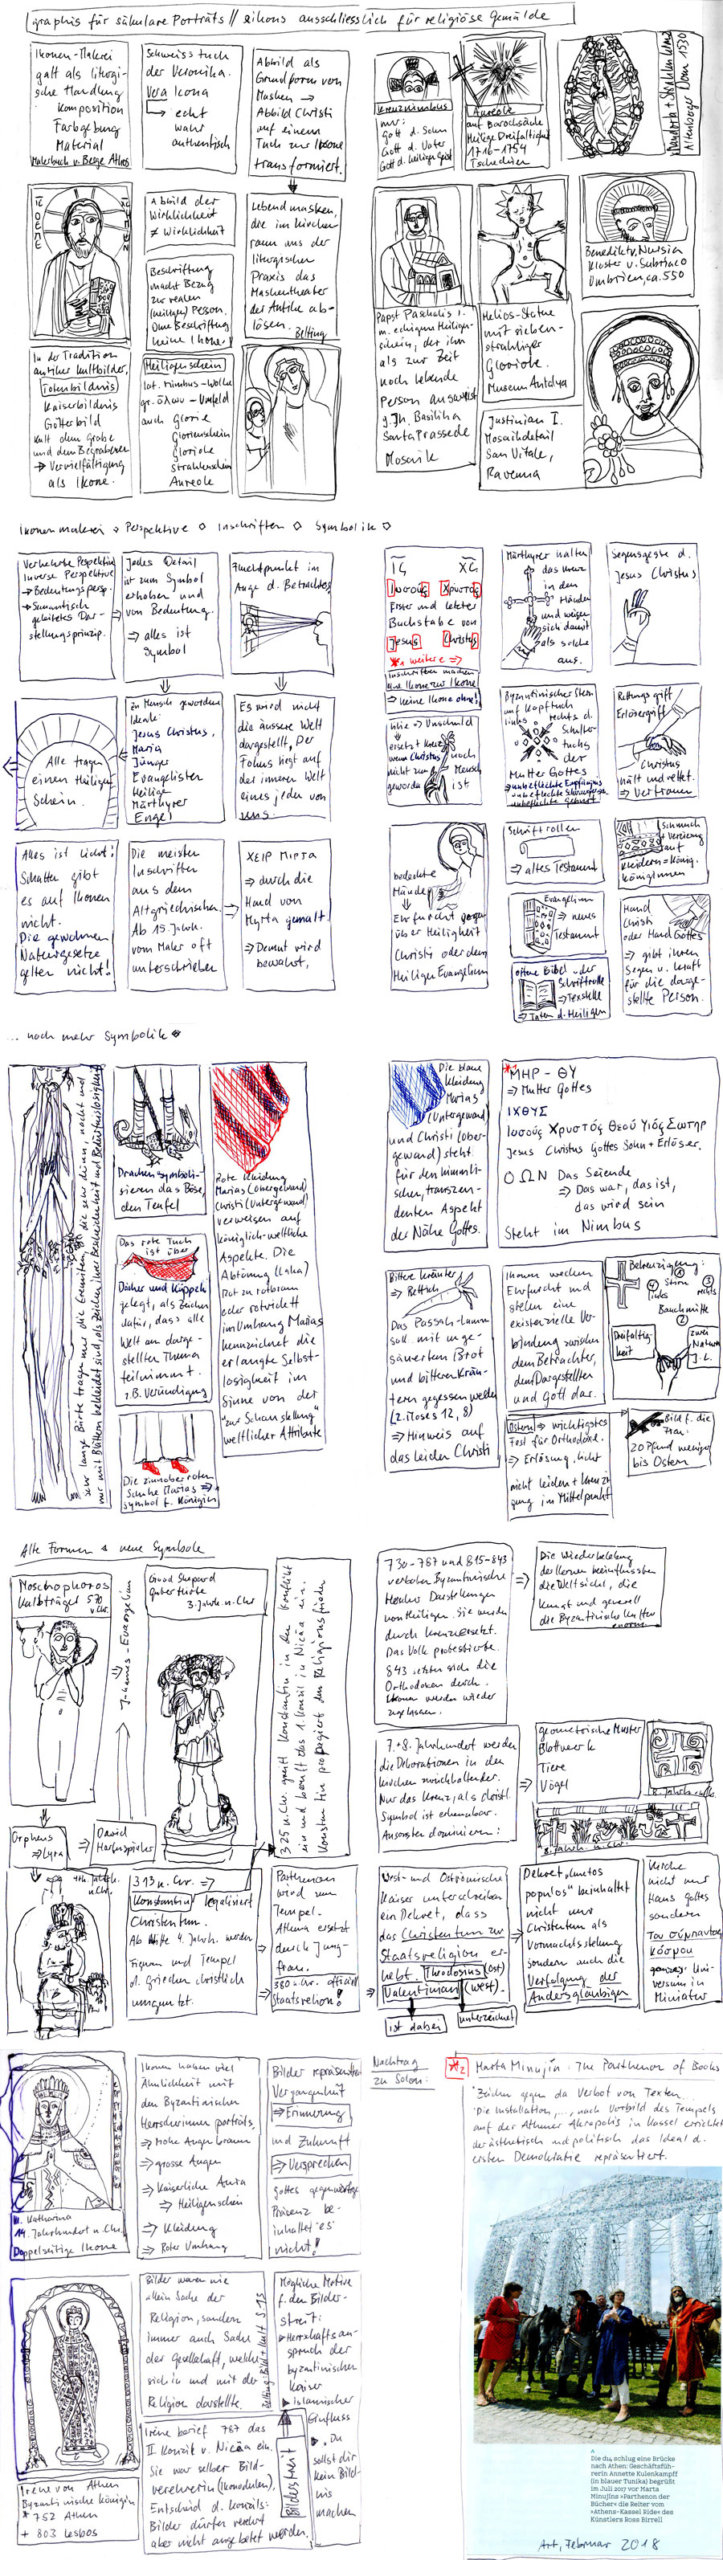 graphis für säkulare Porträts // eikons ausschliesslich für religiöse Gemälde
Ikonen-Malerei
galt als liturgi-
sche Handlung
Komposition
Farbgebung
Material
Malerbuch v. Berge Athos
Schweisstuch
der Veronika.
Vera Icona
echt
wahr
authentisch
Abbild als
Grundform von
Masken →
Abbild Christi
auf einem
Tuch zur Ikone
transformiert.
Abbild der
Wirklichkeit
≠ Wirklichkeit
Beschriftung
macht Bezug
zur realen
Person.
Ohne Beschriftung
keine Ikone!
Lebendmasken,
die im Kirchen-
raum aus der
liturgischen
Praxis das
Maskentheater
der Antike ab-
lösen.
Belting
In der Tradition
antiker Kultbilder.
Totenbildnis
Kaiserbildnis
Götterbild
Kult dem Grabe
und dem Begrabenen
→ Vervielfältigung
als Ikone.
Heiligenschein
lat. nimbus - Wolke
gr. - Umfeld
auch Glorie
Glorienschein
Gloriole
Strahlenschein
Aureole
Kreuznimbus
nur:
Gott d. Sohn
Gott d. Vater
Gott d. Heiliger Geist
Aureole
auf Barocksäule
Heilige Dreifaltigkeit
1716-1754
Tschechien
Mandorla + Strahlenkranz
Altenberger Dom 1530
Papst Paschalis I.
m. eckigem Heiligen-
schein, der ihn
als zur Zeit
noch lebende
Person ausweist
9. Jh. Basilika
Santa Prassede
Mosaik
Helios-Statue
mit sieben-
strahliger
Gloriole.
Museum Antalya
Benedikt v. Nursia
Kloster v. Subiaco
Umbrien, ca. 550
Justinian I.
Mosaikdetail
San Vitale,
Ravenna
Ikonenmalerei Perspektive Inschriften Symbolik
Verkehrte Perspektive
Inverse Perspektive
→ Bedeutungspersp.
→ Semantisch
geleitetes Dar-
stellungsprinzip.
Jedes Detail
ist zum Symbol
erhoben und
von Bedeutung.
⇒ alles ist
Symbol
Fluchtpunkt im
Auge d. Betrachters
Alle tragen
einen Heiligen
Schein.
Zu Mensch gewordene
Ideale:
Jesus Christus,
Maria
Jünger
Evangelisten
Heilige
Märthyrer
Engel
Es wird nicht
die äussere Welt
dargestellt, Der
Fokus liegt auf
der inneren Welt
eines jeden von
uns
Alles ist Licht!
Schatten gibt
es auf Ikonen
nicht.
Die gewohnen
Naturgesetze
gelten nicht!
Die meisten
Inschriften
aus dem
Altgriechischen.
Ab 15. Jahrh.
vom Maler oft
unterschrieben
ΧΕΙΡ ΜΙΡΤΑ
⇒ durch die
Hand von
Myrta gemalt.
⇒ Demut wird
bewahrt.
ΙϚ ΧϚ
Ιοσούς Χρυστός
Erster und letzter
Buchstabe von
Jesus Christus
*1 weitere ⇒
Inschriften machen
eine Ikone zur Ikone
⇒ keine Ikone ohne!
Lilie ⇒ Unschuld
ersetzt Kreuz
wenn Christus
noch
nicht zum Mensch
geworden ist
bedeckte
Hände
Ehrfurcht gegen-
über Heiligkeit
Christi oder dem
Heiligen Evangelium
Märthyrer halten
das Kreuz
in den
Händen
und weisen
sich damit
als solche
aus.
Byzantinischer Stern
auf Kopftuch
links rechts d.
Schulter-
tuchs
der
Mutter Gottes
Schriftrollen
⇒ altes Testament
Evangelium
⇒ neues
Testament
offene Bibel oder
Schriftrolle
⇒ Textstelle
⇒ Taten d. Heiligen
Segensgeste d.
Jesus Christus
Rettungsgriff
Erlösergriff
Christus
hält und rettet.
⇒ Vertrauen
Schmuck
+ Verzierung
auf
Kleidern = König.
Königinnen
Hand
Christi
oder Hand Gottes
⇒ gibt ihren
Segen u. Kraft
für die darge-
stellte Person.
... noch mehr Symbolik
sehr lange Bärte tragen nur die Eremiten, die sehr dünn, nackt und
nur mit Blättern bekleidet sind, als Zeichen ihrer Bescheidenheit und Bedürfnislosigkeit
Drachen symboli-
sieren das Böse,
den Teufel
Das rote Tuch
ist über
Dächer und Kuppeln
gelegt, als Zeichen
dafür, dass alle
Welt am darge-
stellten Thema
teilnimmt.
z.B. Verkündigung
Die zinnoberroten
Schuhe Marias ⇒
symbol f. Königin
Rote Kleidung
Marias (Obergewand)
Christi (Untergewand)
verweisen auf
königlich-weltliche
Aspekte. Die
Abtönung (Laka)
Rot zu rotbraun
oder rotviolett
im Umhang Marias
kennzeichnet die
erlangte Selbst-
losigkeit im
Sinne von der
"zur Schaustellung"
weltlicher Attribute
Die blaue
Kleidung
Marias
(Untergewand)
und Christi (Ober-
gewand) steht
für den himmli-
schen, transzen-
denten Aspekt
der Nähe Gottes.
*1 ΜΗΡ - ΘΥ
⇒ Mutter Gottes
ΙΧΘΥΣ
Ιοσούς Χρυστός Θεού Υιός Σωτηρ
Jesus Christus Gottes Sohn + Erlöser.
Ο ΩΝ Das Seiende
⇒ Das war, das ist,
das wird sein
Steht im Nimbus
Bittere Kräuter
⇒ Rettich
Das Passah-Lamm
soll mit unge-
säuertem Brot
und bitteren Kräu-
tern gegessen werden
(2. Moses 12, 8)
⇒ Hinweis auf
das Leiden Christi
Ikonen wecken
Ehrfurcht und
stellen eine
existenzielle Ver-
bindung zwischen
dem Betrachter,
dem Dargestellten
und Gott dar.
Bekreuzigung:
① Stirn
③ rechts
④ links
Bauchmitte
②
Dreifaltig-
keit
zwei
Naturen
J.C.
Ostern ⇒ wichtigstes
Fest für Orthodoxe.
⇒ Erlösung, Licht
nicht Leiden + Kreuzi-
gung im Mittelpunkt
Bild f. die
Frau:
20 Pfund weniger
bis Ostern
Alte Formen + neue Symbole
Moschophoros
Kalbträger 570
v. Chr.
Johannes-Evangelium
Good Sheperd
Guter Hirte
3. Jahrh. n. Chr.
325 n. Chr. greift Konstantin in den Konflikt
ein und beruft das 1. Konzil in Nicäa ein.
Konstantin propagiert den Religionsfrieden
Orpheus
⇒ Lyra
⇒ David
Harfenspieler
4. Jahrh.
n. Chr.
313 n. Chr. ⇒
Konstantin legalisiert
Christentum.
Ab Mitte 4. Jahrh. werden
Figuren und Tempel
d. Griechen christlich
umgenutzt.
Parthenon
wird zum
Tempel.
Athena ersetzt
durch Jung-
frau.
380 n. Chr. offiziell
Staatsreligion!
730-787 und 815-843
verboten Byzantinische
Herrscher Darstellungen
von Heiligen. Sie wurden
durch Kreuz ersetzt.
Das Volk protestierte.
843 setzten sich die
Orthodoxen durch.
Ikonen werden wieder
zugelassen.
Die Wiederbelebung
der Ikonen beeinflussten
die Weltsicht, die
Kunst und generell
die Byzantinische Kultur
enorm.
7.+8. Jahrhundert werden
die Dekorationen in den
Kirchen zurückhaltender.
Nur das Kreuz, als christl.
Symbol ist erkennbar.
Ansonsten dominieren:
geometrische Muster
Blattwerk
Tiere
Vögel
8. Jahrh. n. Chr.
8. Jahrh. n. Chr.
West- und Oströmische
Kaiser unterschreiben
ein Dekret, dass
das Christentum zur
Staatsreligion er-
hebt. Theodosius (Ost)
Valentinian (West).
ist dabei
unterzeichnet
Dekret „cunctos
populos" beinhaltet
nicht nur
Christentum als
Vormachtsstellung
sondern auch die
Verfolgung der
Andersgläubigen
Kirche
nicht nur
Haus Gottes
sondern
Του σύμπαντος
κόσμου
ganzes Uni-
versum in
Miniatur
H. Katharina
14. Jahrhundert n. Chr.
Doppelseitige Ikone
Ikonen haben viel
Ähnlichkeit mit
den Byzantinischen
Herrscherinnen porträts.
⇒ hohe Augenbrauen
⇒ grosse Augen
⇒ Kaiserliche Aura
⇒ Heiligenschein
⇒ Kleidung
⇒ Roter Umhang
Bilder repräsentieren
Vergangenheit
⇒ Erinnerung
und Zukunft
⇒ Versprechen
Gottes gegenwärtige
Präsenz be-
inhaltet es
nicht!
Nachtrag
zu Solon:
*2 Marta Minujín. The Parthenon of Books
Zeichen gegen das Verbot von Texten.
Die Installation, ..., nach Vorbild des Tempels
auf der Athener Akropolis in Kassel errichtet
der ästhetisch und politisch das Ideal d.
ersten Demokratie repräsentiert.
Irene von Athen
Byzantinische Königin
* 752 Athen
+ 803 Lesbos
Bilder waren nie
allein Sache der
Religion, sondern
immer auch Sache
der Gesellschaft, welche
sich in und mit der
Religion darstellte.
Belting: Bild + Kult S. 13
Irene berief 787 das
II Konzil v. Nicäa ein.
Sie war selber Bild-
verehrerin (Ikonodulen).
Entscheid d. Konzils:
Bilder dürfen verehrt
aber nicht angebetet werden.
Bilderstreit
Mögliche Motive
f. den Bilder-
streit:
Herrschaftsan-
spruch der
byzantinischen
Kaiser
Islamischer
Einfluss
„Du
sollst dir
kein Bild-
nis
machen
Die d14 schlug eine Brücke
nach Athen: Geschäftsfüh-
rerin Annette Kulenkampff
(in blauer Tunika) begrüßt
im Juli 2017 vor Marta
Minujíns »Parthenon der
Bücher« die Reiter vom
»Athens-Kassel Ride« des
Künstlers Ross Birrell
Art, Februar 2018